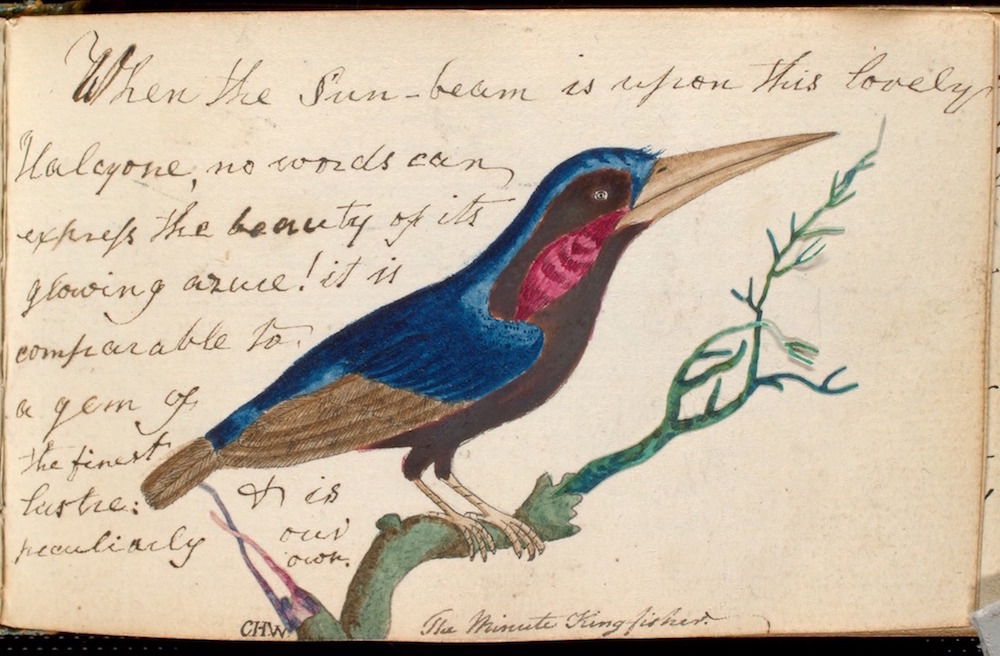 When the Sun-beam is upon this lovely
Halcyone, no words can
express the beauty of its
glowing azure! it is
comparable to
a gem of
the finest
lustre: & is
peculiarly our
own.
CHW
The Minute Kingfisher.